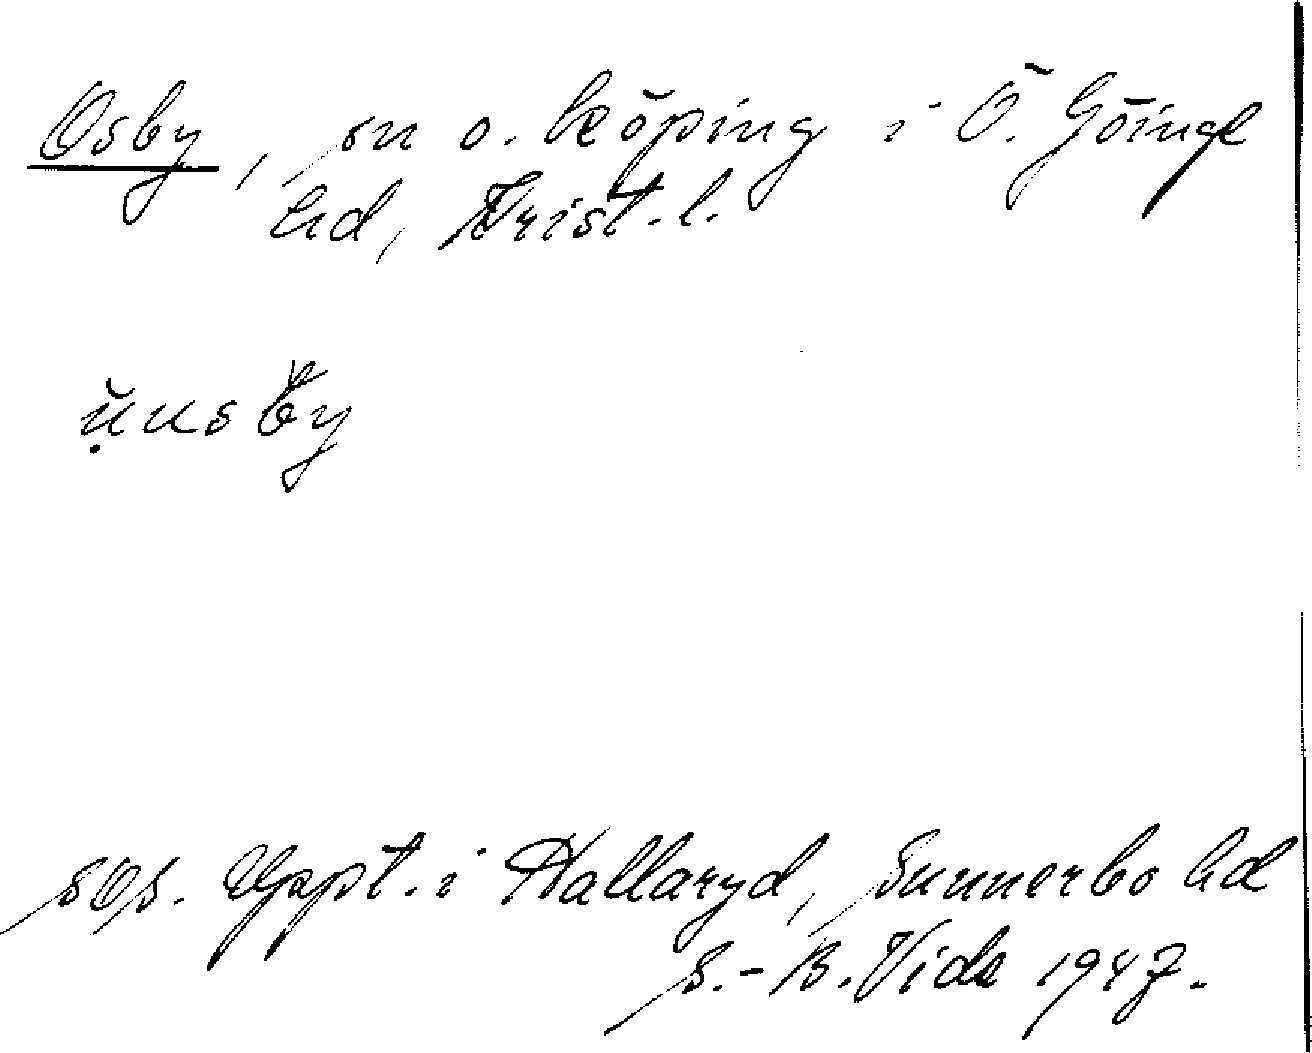 Osby, sn o. köping i Ö. Göinge
hd, Krist. l.
ụ̆usby
sɷs. Uppt. i Hallaryd, Sunnerbo hd
S.-B. Vide 1947.